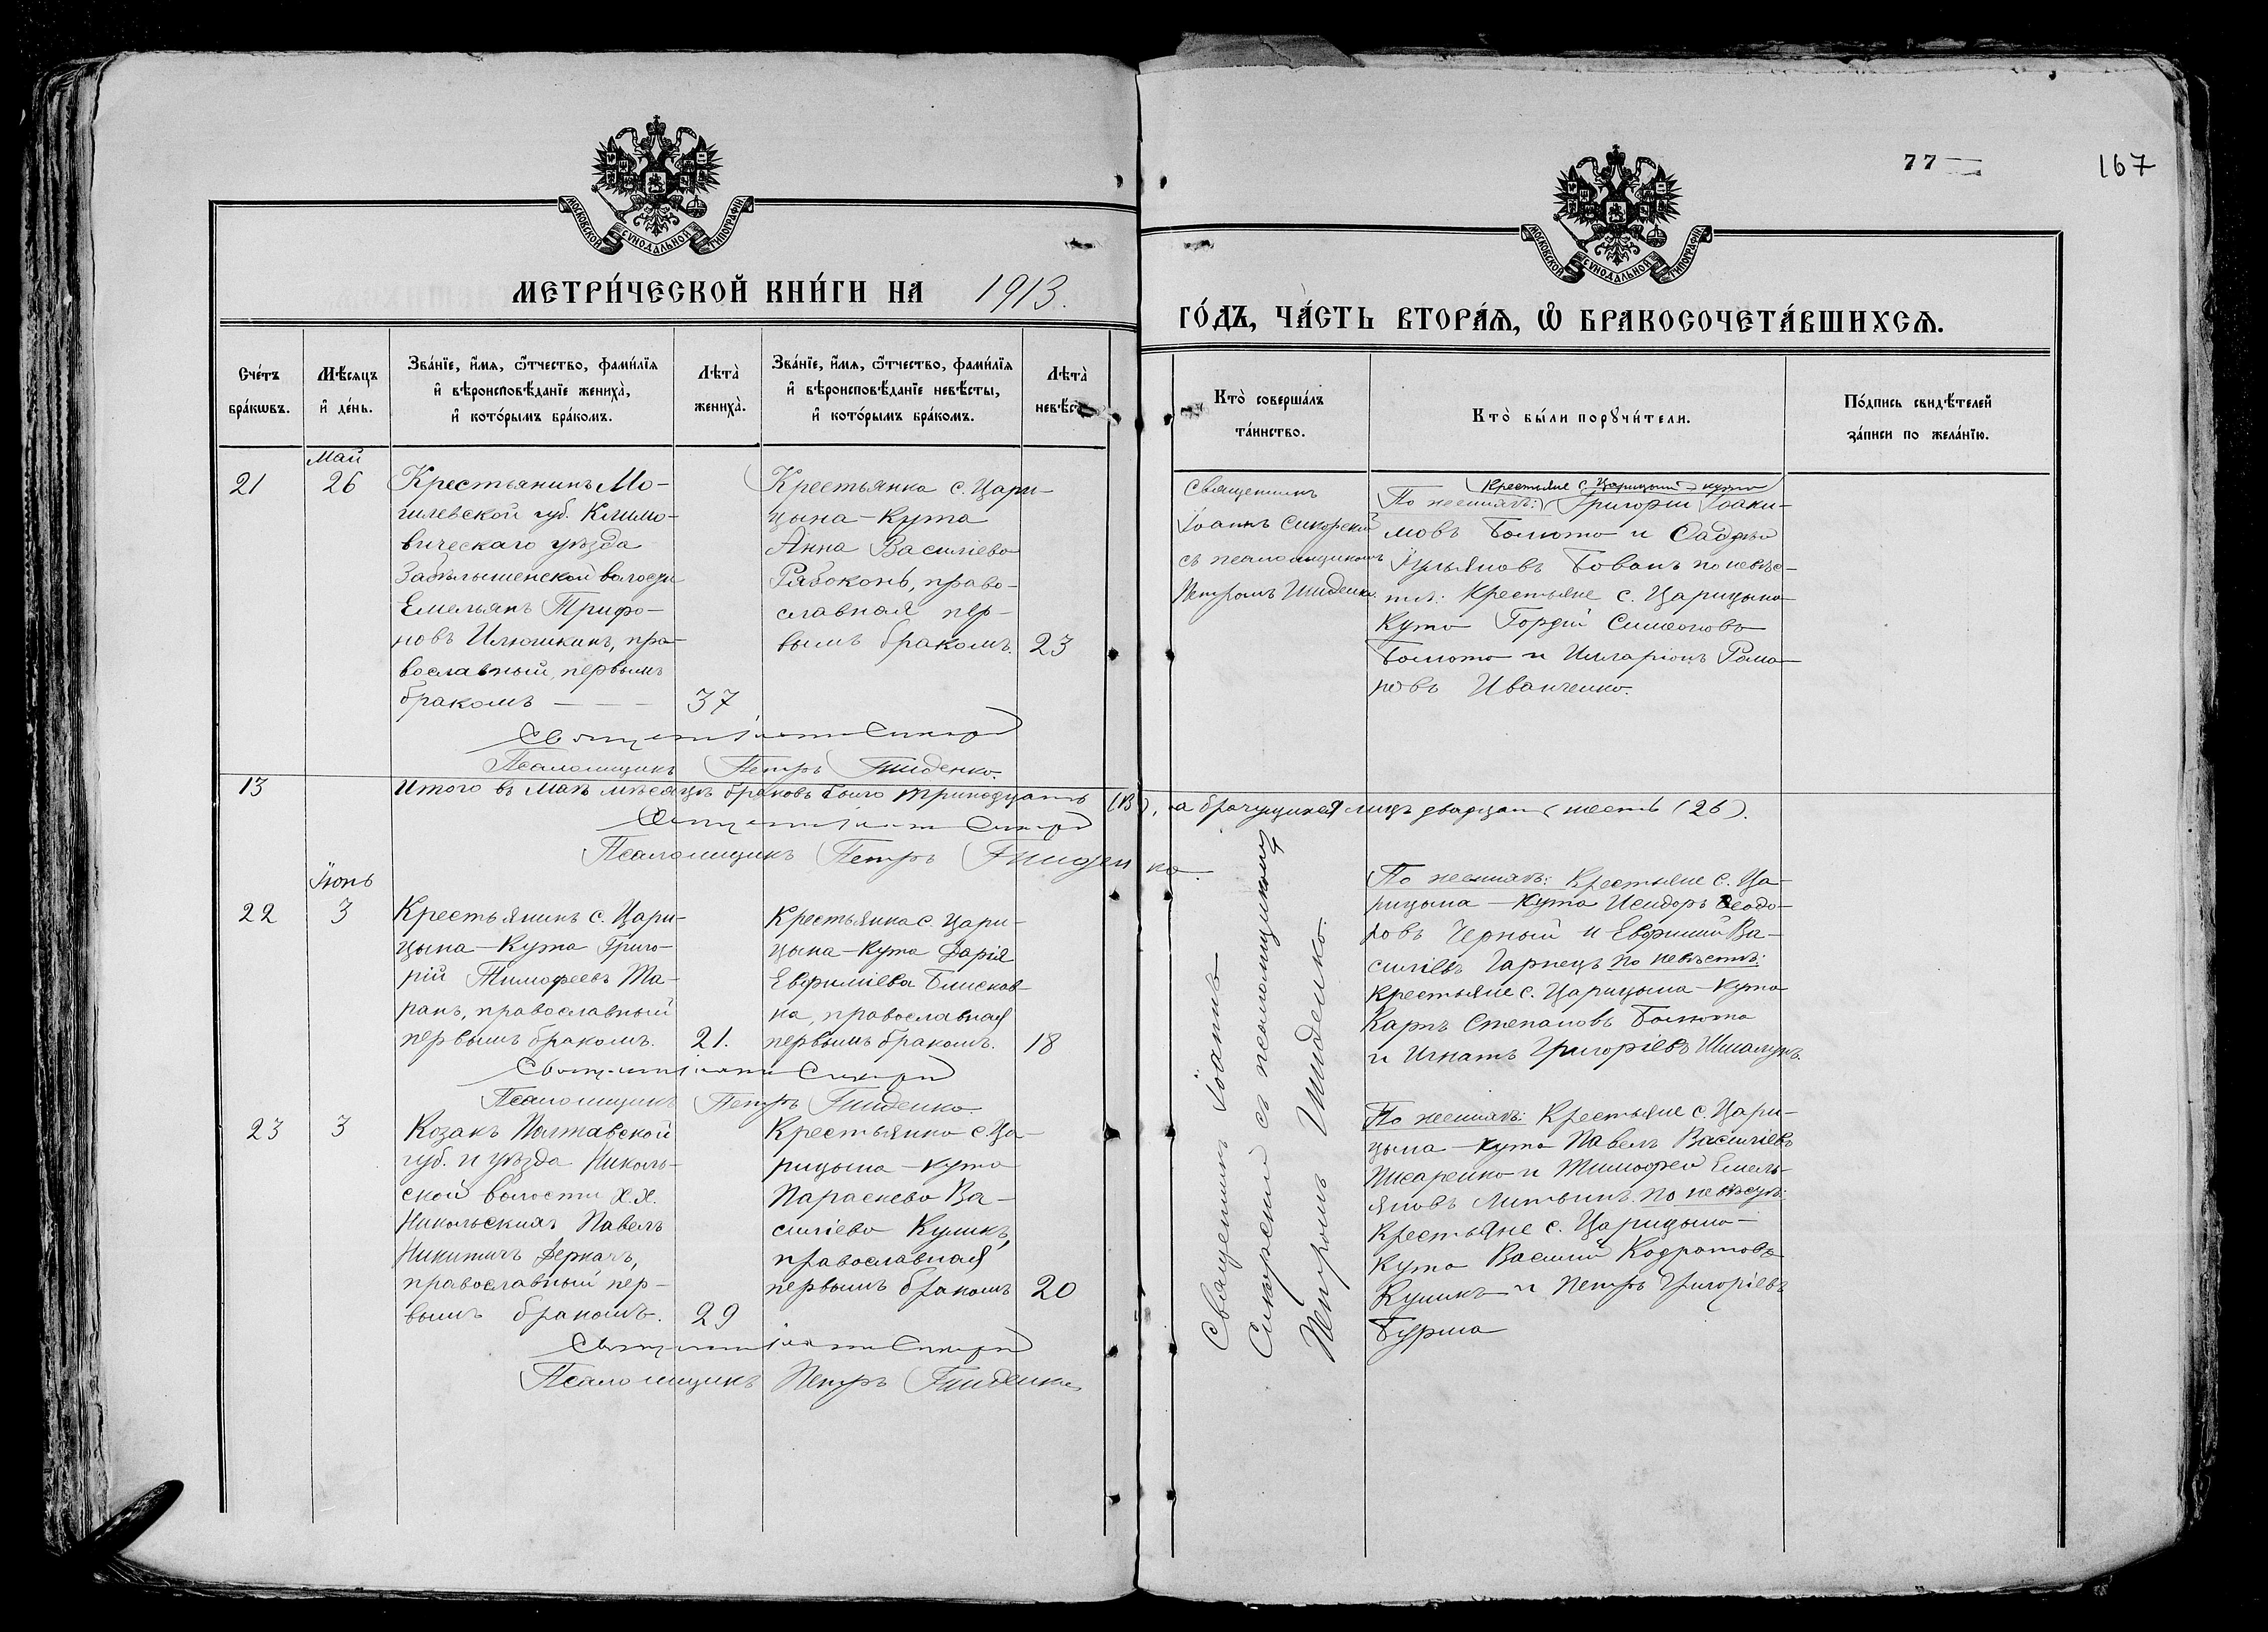 77
167
МОСКОВСКОЙ СѴНОДАЛЬНОЙ ТИПОГРАФІИ
МОСКОВСКОЙ СѴНОДАЛЬНОЙ ТИПОГРАФІИ
МЕТРИ́ЧЕСКОЙ КНИ́ГИ НА 1913.
ГО́ДЪ, ЧА́СТЬ ВТОРА́Ѧ, Ѽ БРАКОСОЧЕТА́ВШИХСѦ.
Сче́тъ бра́кѡвъ.
Мѣ́сѧцъ и҆ де́нь.
Зва́нїе, и҆́мѧ, ѻ҆́тчество, фами́лїѧ
и҆ вѣроисповѣ́данїе жениха̀,
и҆ кото́рымъ бра́комъ.
Лѣта̀ жениха̀.
Зва́нїе, и҆́мѧ, ѻ҆́тчество, фами́лїѧ
и҆ вѣроисповѣ́данїе невѣ́сты,
и҆ кото́рымъ бра́комъ.
Лѣта̀ невѣ́с
Кто̀ соверша́лъ
та́инство.
Кто̀ бы́ли порꙋчи́тели.
По́дпись свидѣ́телей
за́писи по жела́нїю.
Май
21
26
Крестьянинъ Мо-
гилевской губ. Климо-
вическаго уѣзда
Забѣлышенской волости
Емельянъ Трифо-
новъ Илюшкинъ, пра-
вославный, первымъ
бракомъ — — —
37
Крестьянка с. Цари-
цына-Кута
Анна Василіева
Рябоконь, право-
славная пер-
вымъ бракомъ.
23
Священникъ
Іоаннъ Сикорскій
съ псаломщикомъ
Петромъ Гниденко.
Крестьяне с. Царицына-Кута
По женихѣ: Григорій Іоаки-
мовъ Болюто и Фаддѣй
Ульяновъ Бованъ по невѣс-
тѣ: Крестьяне с. Царицына-
Кута Гордій Симеоновъ
Болюто и Илларіонъ Рома-
новъ Иванченко.
Священникъ Іоаннъ Сикорскій
Псаломщикъ Петръ Гниденко.
13
Итого въ Маѣ мѣсяцѣ браковъ было тринадцать (13), а брачущихся лицъ двадцать шесть (26).
Священникъ Іоаннъ Сикорскій
Псаломщикъ Петръ Гниденко.
Іюнь
22
3
Крестьянинъ с. Цари-
цына-Кута Григо-
рій Тимофеевъ Та-
ранъ, православный
первымъ бракомъ.
21.
Крестьянка с. Цари-
цына-Кута Дарія
Евфиміева Блискав-
ка, православная
первымъ бракомъ.
18
Священникъ Іоаннъ
Сикорскій съ псаломщикомъ
Петромъ Гниденко.
По женихѣ: Крестьяне с. Ца-
рицына-Кута Исидоръ Феодо-
ровъ Черный и Евфимій Ва-
силіевъ Гарнецъ по невѣстѣ:
Крестьяне с. Царицына-Кута
Карпъ Степановъ Болюто
и Игнатъ Григоріевъ
Священникъ Іоаннъ Сикорскій
Псаломщикъ Петръ Гниденко
23
3
Козакъ Полтавской
губ. и уѣзда Николь-
ской волости х.х.
Никольскихъ Павелъ
Никитичъ Деркачъ,
православный пер-
вымъ бракомъ.
29
Крестьянка с. Ца-
рицына-Кута
Параскева Ва-
силіева Куликъ,
православная
первымъ бракомъ
20
По женихѣ: Крестьяне с. Цари-
цына-Кута Павелъ Василіевъ
Писаренко и Тимофей Емель-
яновъ Литвинъ по невѣстѣ:
Крестьяне с. Царицына-
Кута Василій Кодратовъ
Куликъ и Петръ Григоріевъ
Бурма
Священникъ Іоаннъ Сикорскій
Псаломщикъ Петръ Гниденко